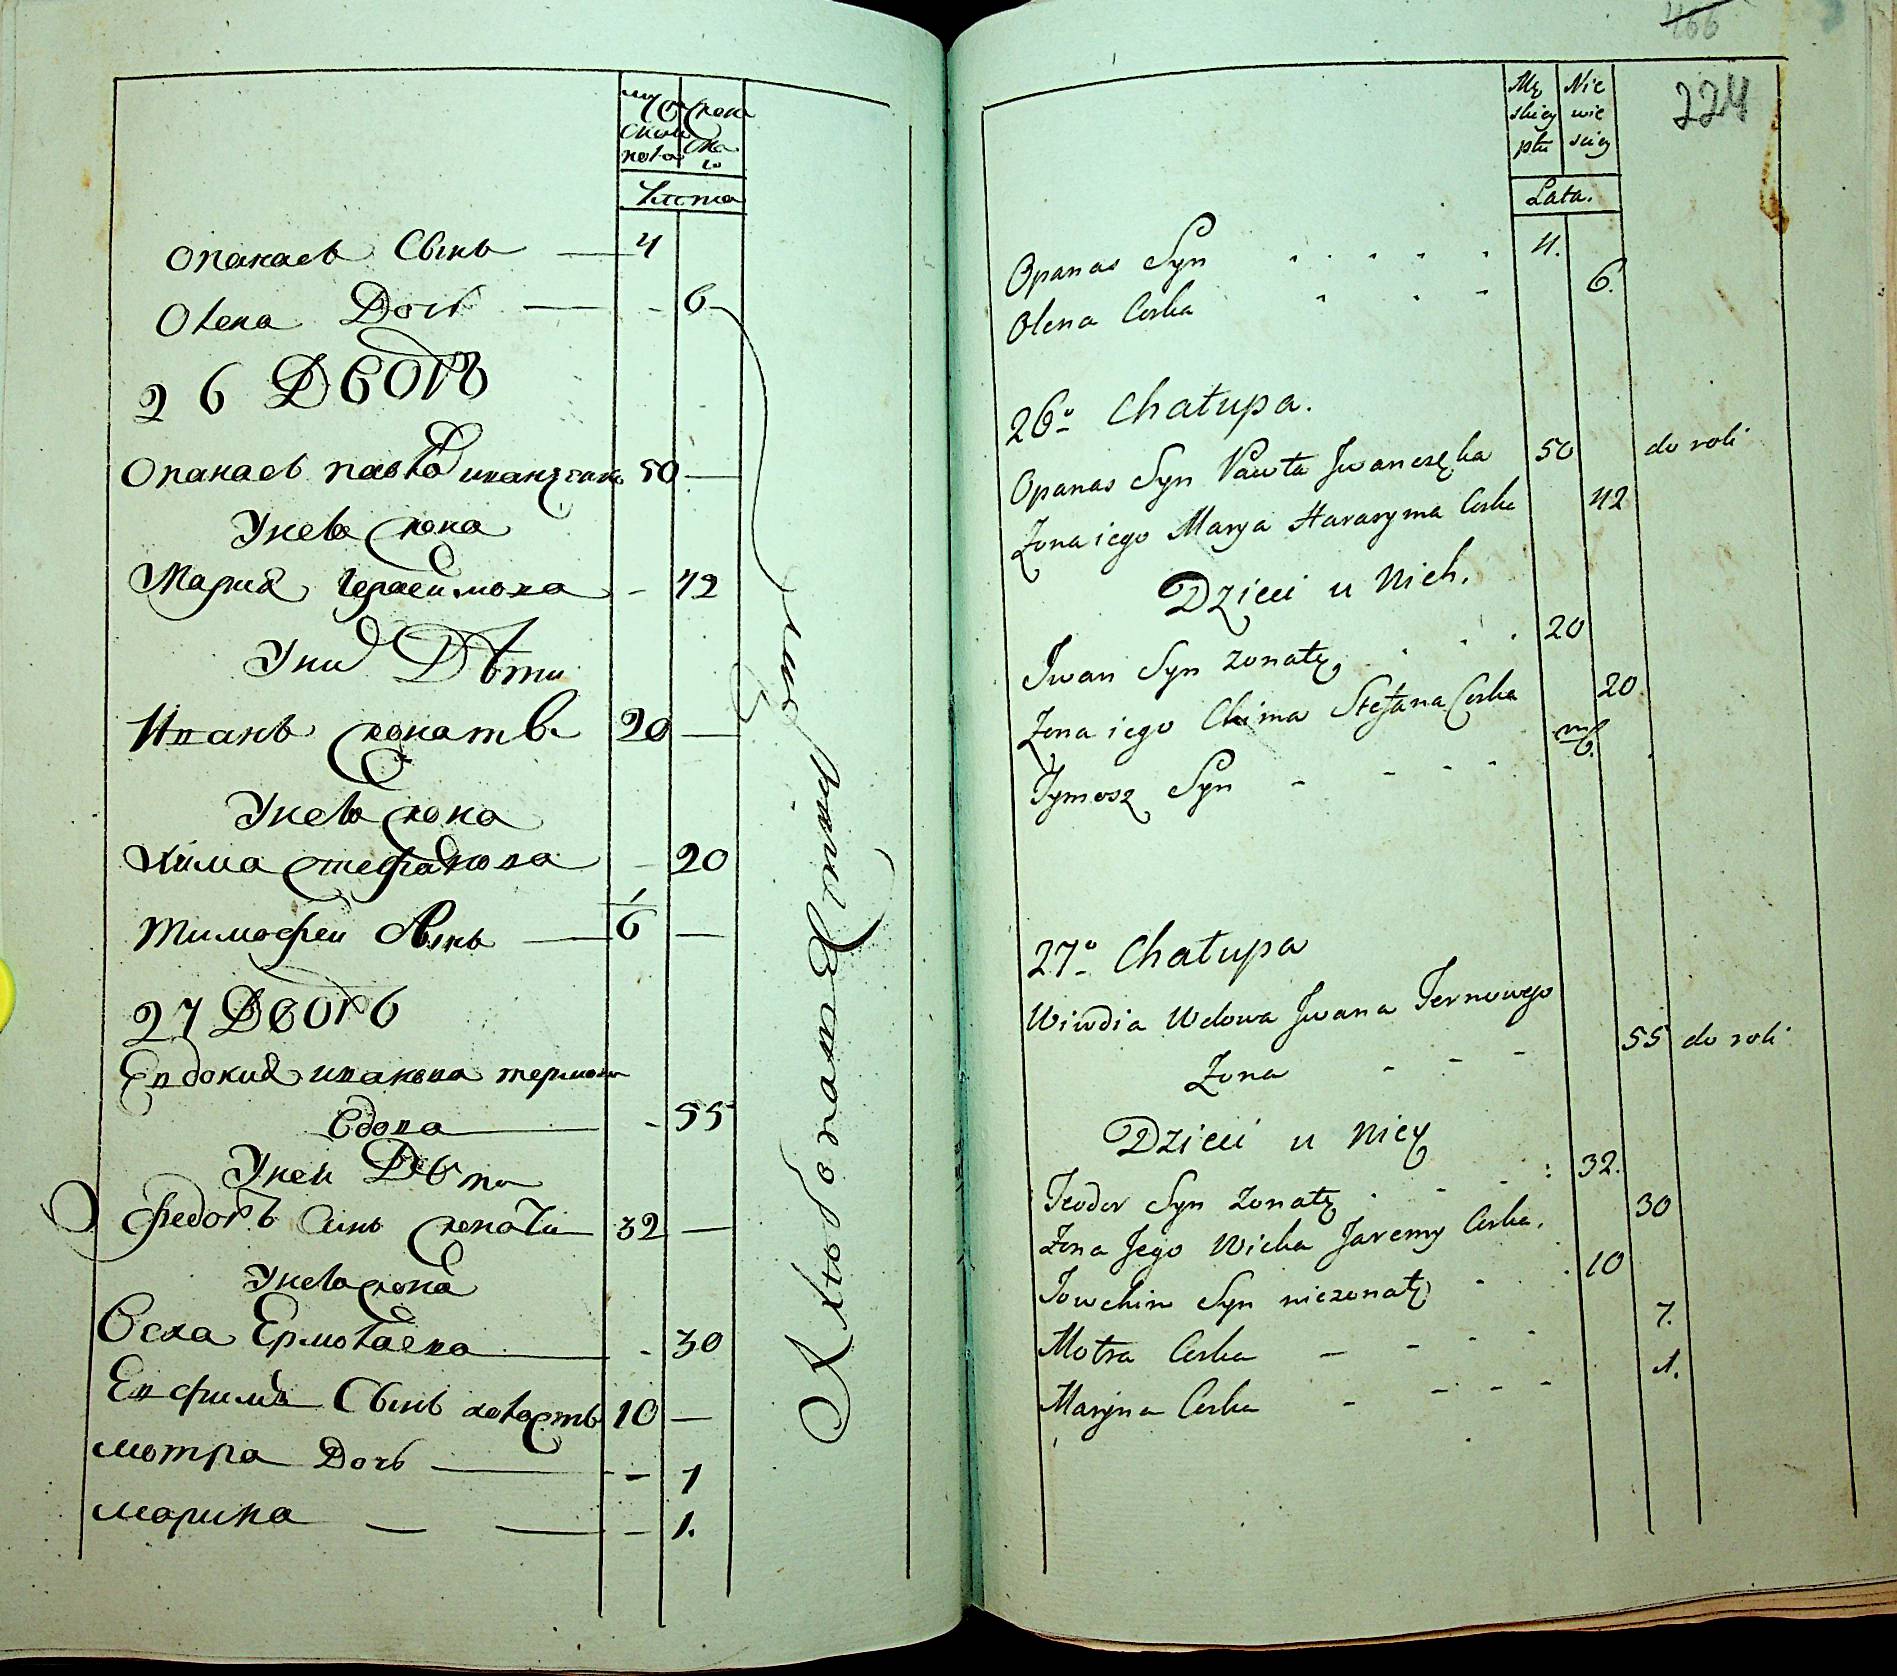 мужска пола
женска
Лѣта
Опанасъ Сынъ — 4
Олена Дочь — - 6
26 Дворъ
Опанасъ павловъ иванченко 50 —
Унего жона
Мария Герасимова - 42
Унихъ Дѣти
Иванъ жонатъ 20 —
Унего жона
Хима стефанова - 20
Тимофей Сынъ — 1/6 —
27 Дворъ
Евдокия иванова тернова
вдова - 55
Уней Дѣти
Федоръ Сынъ жонатъ 32 —
Унего жона
Васка Ермолаева - 30
Евфимъ Сынъ холостъ 10 —
Мотра Дочь — - 1
Марина — — - 1.
466
224
Mę skiey płci
Nie wie sciey
Lata.
Opanas Syn 4.
Olena Corka 6.
26o Chałupa.
Opanas Syn Pawła Iwanczęka 50 do roli
Zona iego Marya Harasyma Corka 42
Dzieci u Nich.
Iwan Syn zonatę 20
Zona iego Chima Stefana Corka 20
Tymosz Syn m/6.
27o Chałupa
Wiwdia Wdowa Iwana Ternowego
Zona 55 do roli
Dzieci u Niey
Teodor Syn zonatę 32.
Zona Jego Wicka Jaremy Corka. 30
Jowchim Syn niezonatę 10
Motra Corka 7.
Maryna Corka 1.